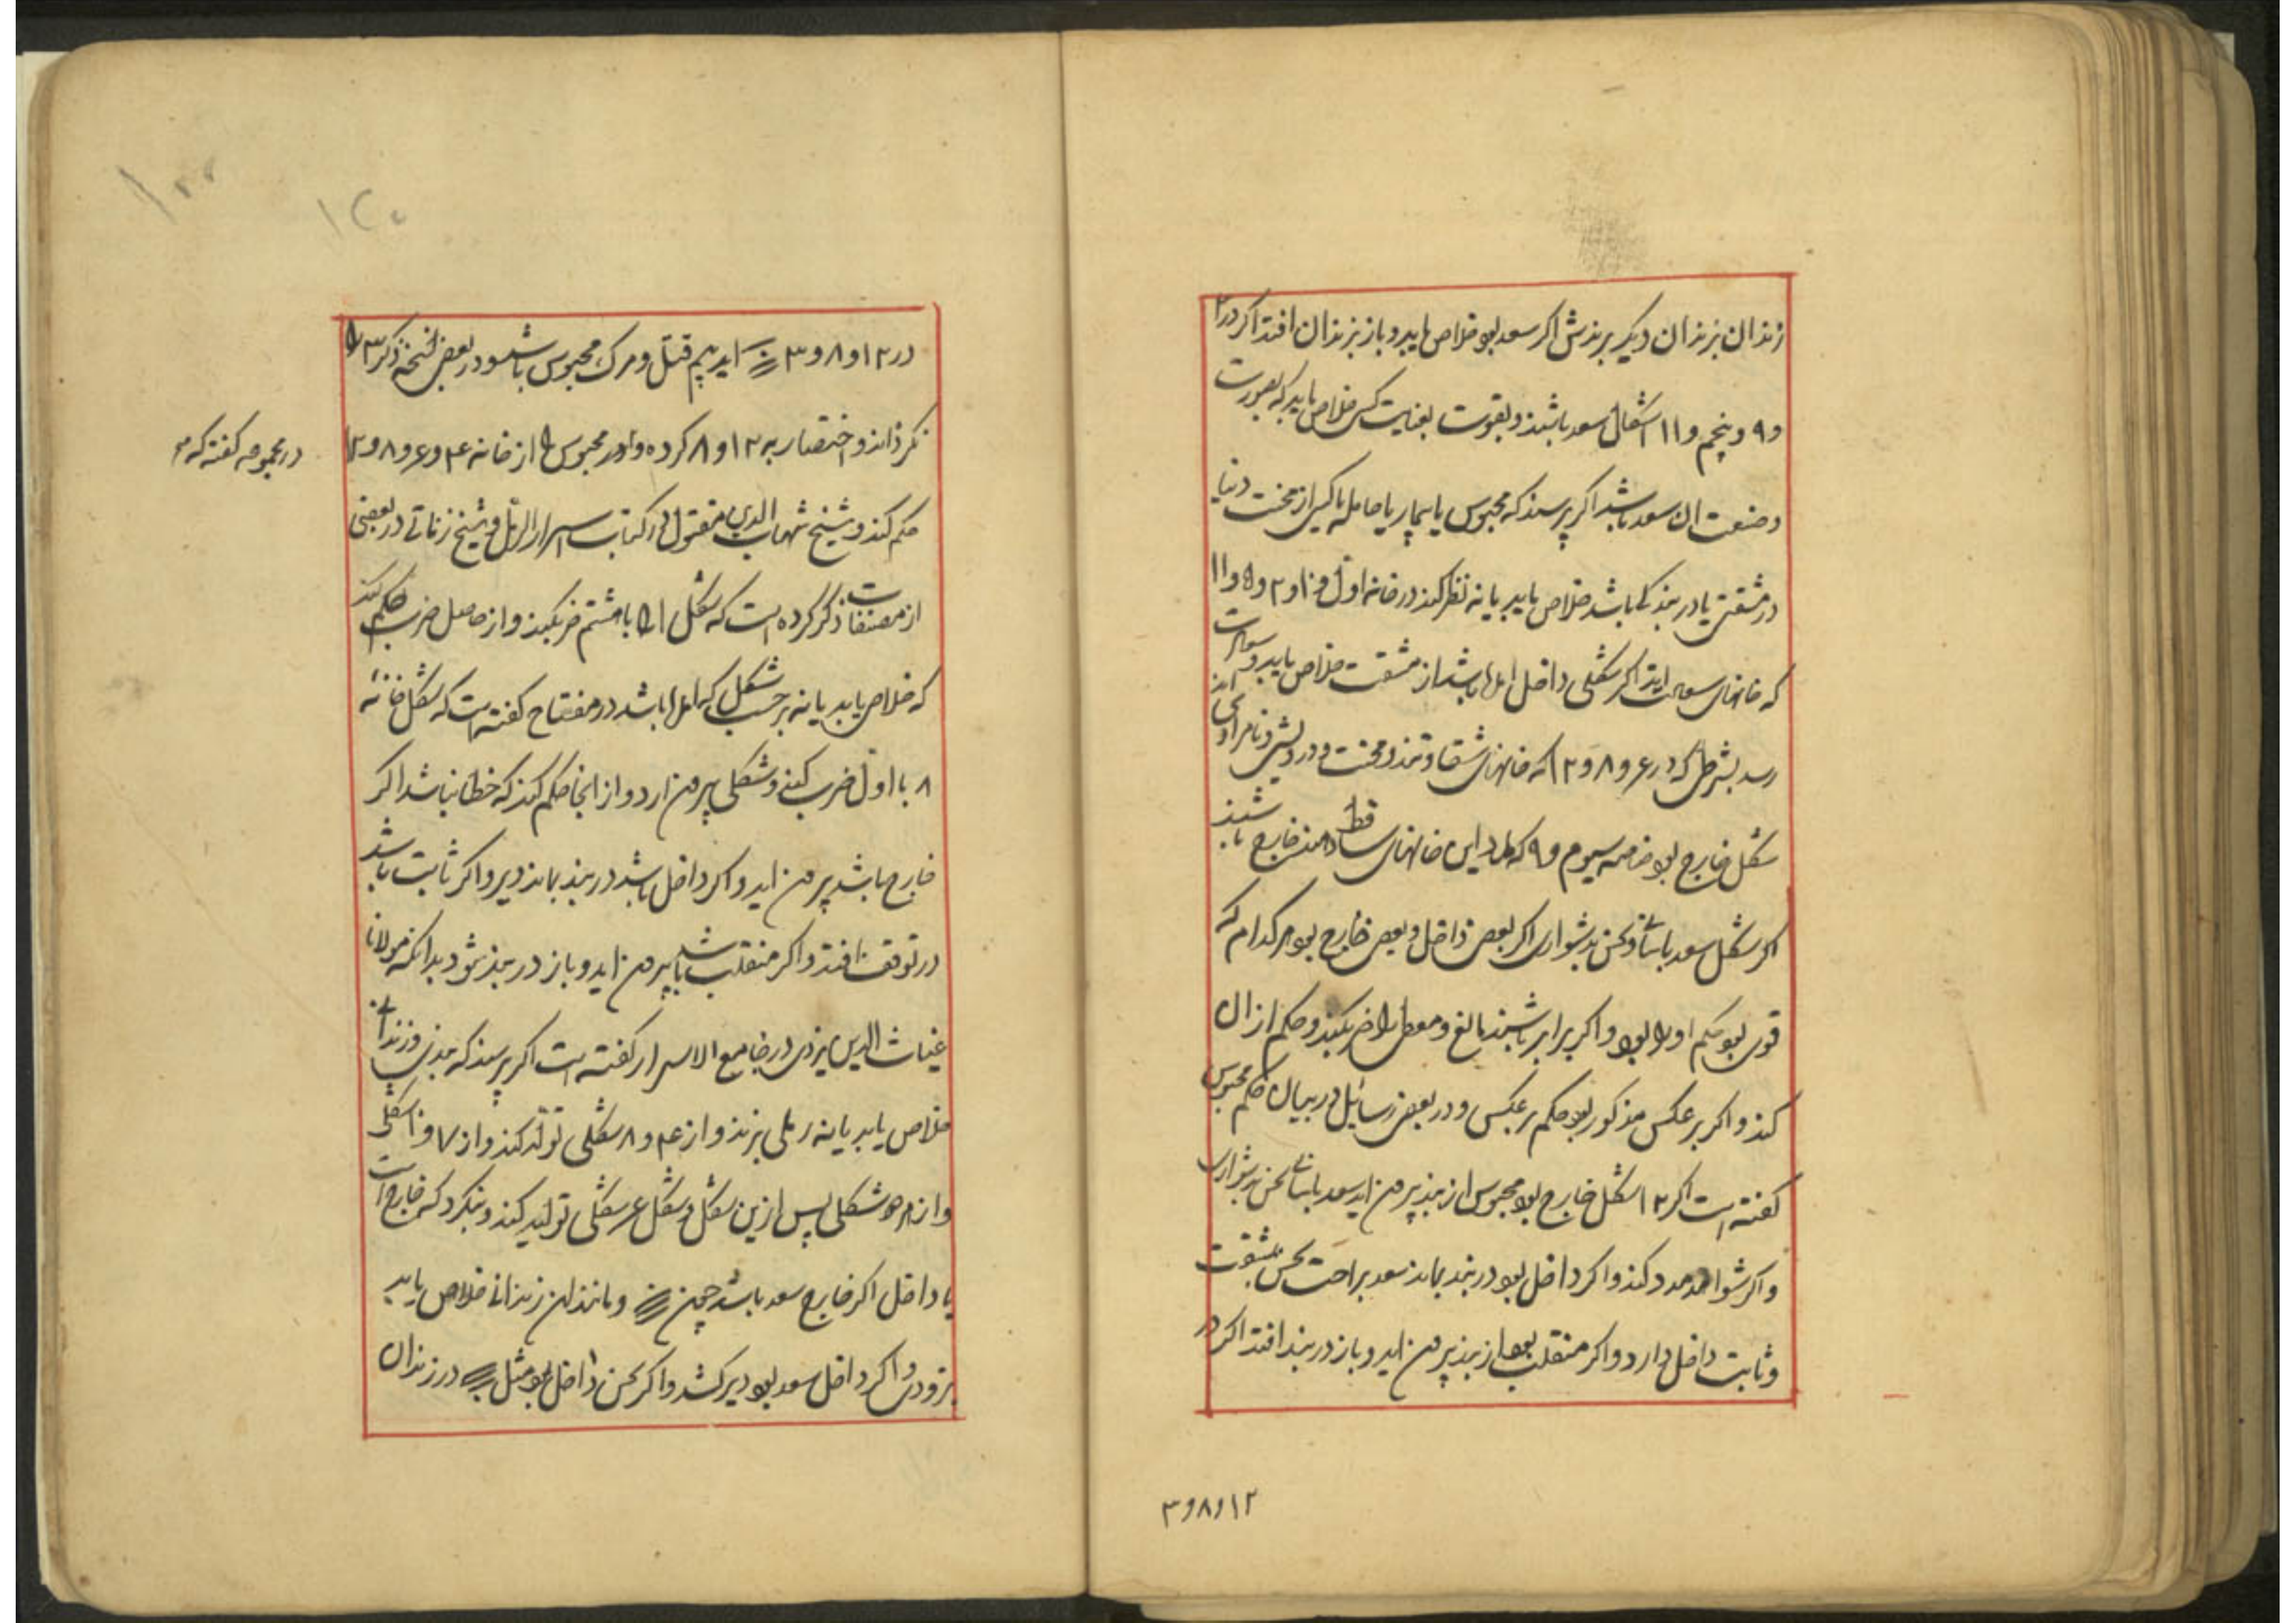 زندان بزندان دیگر برندش اگر سعد بود خلاص یابد و باز بزندان افتد اگر در ۲
و ۹ و پنجم و ۱۱ اشکال سعد باشند و بقوت بغایت کس خلاص یابد که بصورت
و صنعت ان سعد باشد اگر پرسند که محبوس یا بیمار یا حامله یا کسی از محنت دنیا
در مشقتی یا در بندی باشد خلاص یابد یا نه نظر کند در خانه اول و ۱۰ و ۲ و ۵ و ۱۱
که خانهای سعادت اند اگر شکلی داخل اید باشد از مشقت خلاص یابد و بسعادت
رسد بشرطی که در ۶ و ۸ و ۱۲ که خانهای شقاوتند و محنت و درویشی و نامرادی اند
شکل خارج بود خاصه سیوم و ۹ که این خانهای ساقط خارج باشند
اگر شکل سعد باسانی و نحس بدشواری اگر بعضی داخل و بعضی خارج بود هر کدام که
قوی بود حکم او را بود و اگر برابر باشند بالغ و معطل را ضرب کند و حکم از ان
کند و اگر برعکس مذکور بود حکم برعکس و در بعضی رسائل در بیان حکم محبوس
گفته است اگر ۱۲ شکل خارج بود محبوس از بند بیرون اید سعد باسانی نحس بدشواری
و اگر شواهد مدد کند و اگر داخل بود در بند بماند سعد براحت نحس بمشقت
و ثابت داخل دارد و اگر منقلب بود از بند بیرون اید و باز در بند افتد اگر در
۱۲ و ۸ و ۳
در ۱۲ و ۸ و ۳ اید بیم قتل و مرگ محبوس باشد و در بعضی نسخه ذکر ۳ را
نکرده اند و اختصار به ۱۲ و ۸ کرده و محبوس را از خانه ۴ و ۶ و ۸ و ۱۲
در مجموعه گفته که
حکم کند و شیخ شهاب الدین مقتول در کتاب اسرار الرمل و شیخ زناتی در بعضی
از مصنفات ذکر کرده است که شکل ۱ را با هشتم ضرب کند و از حاصل ضرب حکم کند
که خلاص یابد یا نه برحسب شکل که اید باشد در مفتاح گفته است که شکل خانه
۸ با اول ضرب کند و شکلی بیرون ارد و از انجا حکم کند که خطا نباشد اگر
خارج باشد بیرون اید و اگر داخل باشد در بند بماند دیر و اگر ثابت باشد
در توقف افتد و اگر منقلب باشد بیرون اید و باز در بند شود بدانکه مولانا
غیاث الدین یزدی در جامع الاسرار گفته است اگر پرسند که بندی و زندانی
خلاص یابد یا نه رملی بزند و از ۴ و ۸ شکلی تولد کند و از ۷ و ۱۰ شکلی
و از هر دو شکلی پس ازین شکل و شکل ۶ شکلی تولید کند و بنگرد که خارج است
یا داخل اگر خارج سعد باشد چون و مانند ان زندانی خلاص یابد
بزودی و اگر داخل سعد بود دیر کشد و اگر نحس داخل بود مثل در زندان